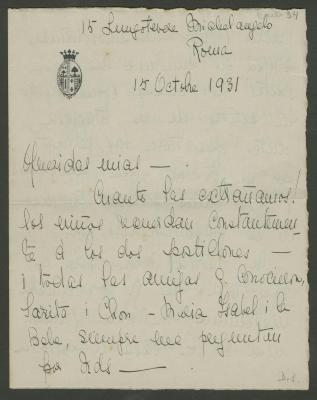 15 Lungotevere Michelangelo
Roma
15 Octbre 1931
Queridas mias —
Cuanto las extrañamos!
los niños recuerdan constantemen
te á los dos
i todas las amigas q. conocieron,
Sarita i Chon - Maria Isabel i la
Bebe, siempre me preguntan
por Uds —
D.S.